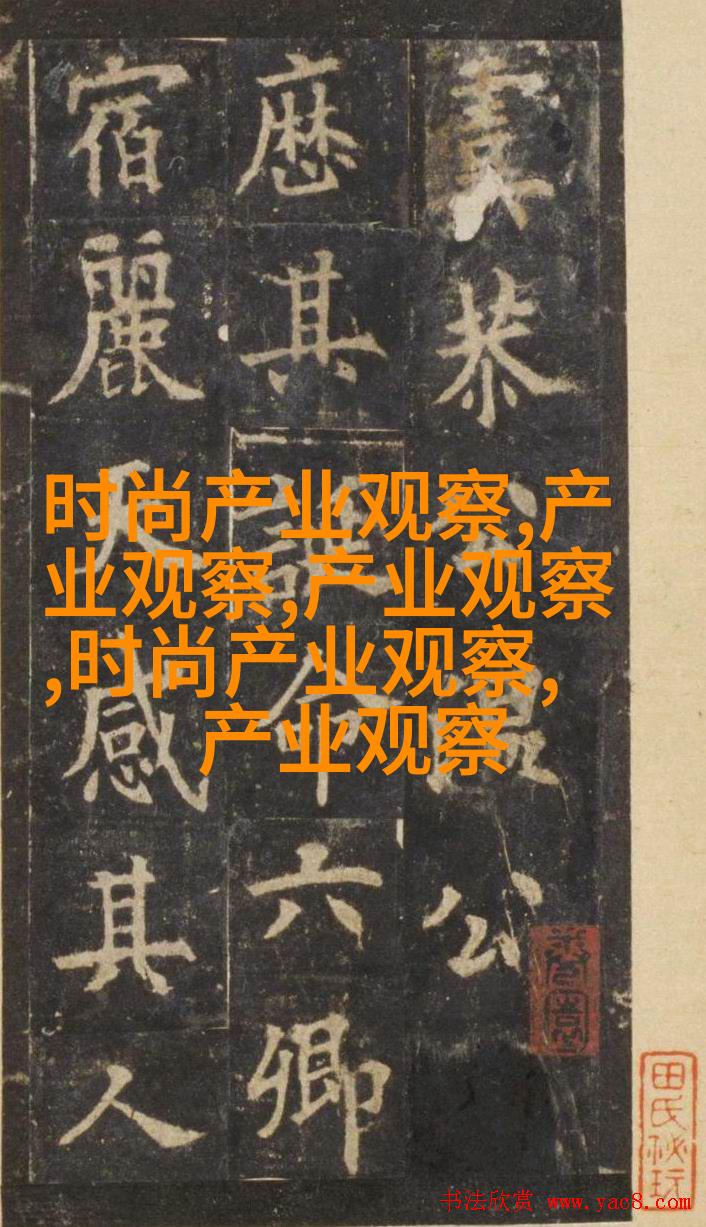 时尚产业观察,产
业观察,产业观察
,时尚产业观察,
产业观察
恭公
厯其命六卿
宿麗天感其人
田氏秘玩
书法欣赏 www.yac8.com